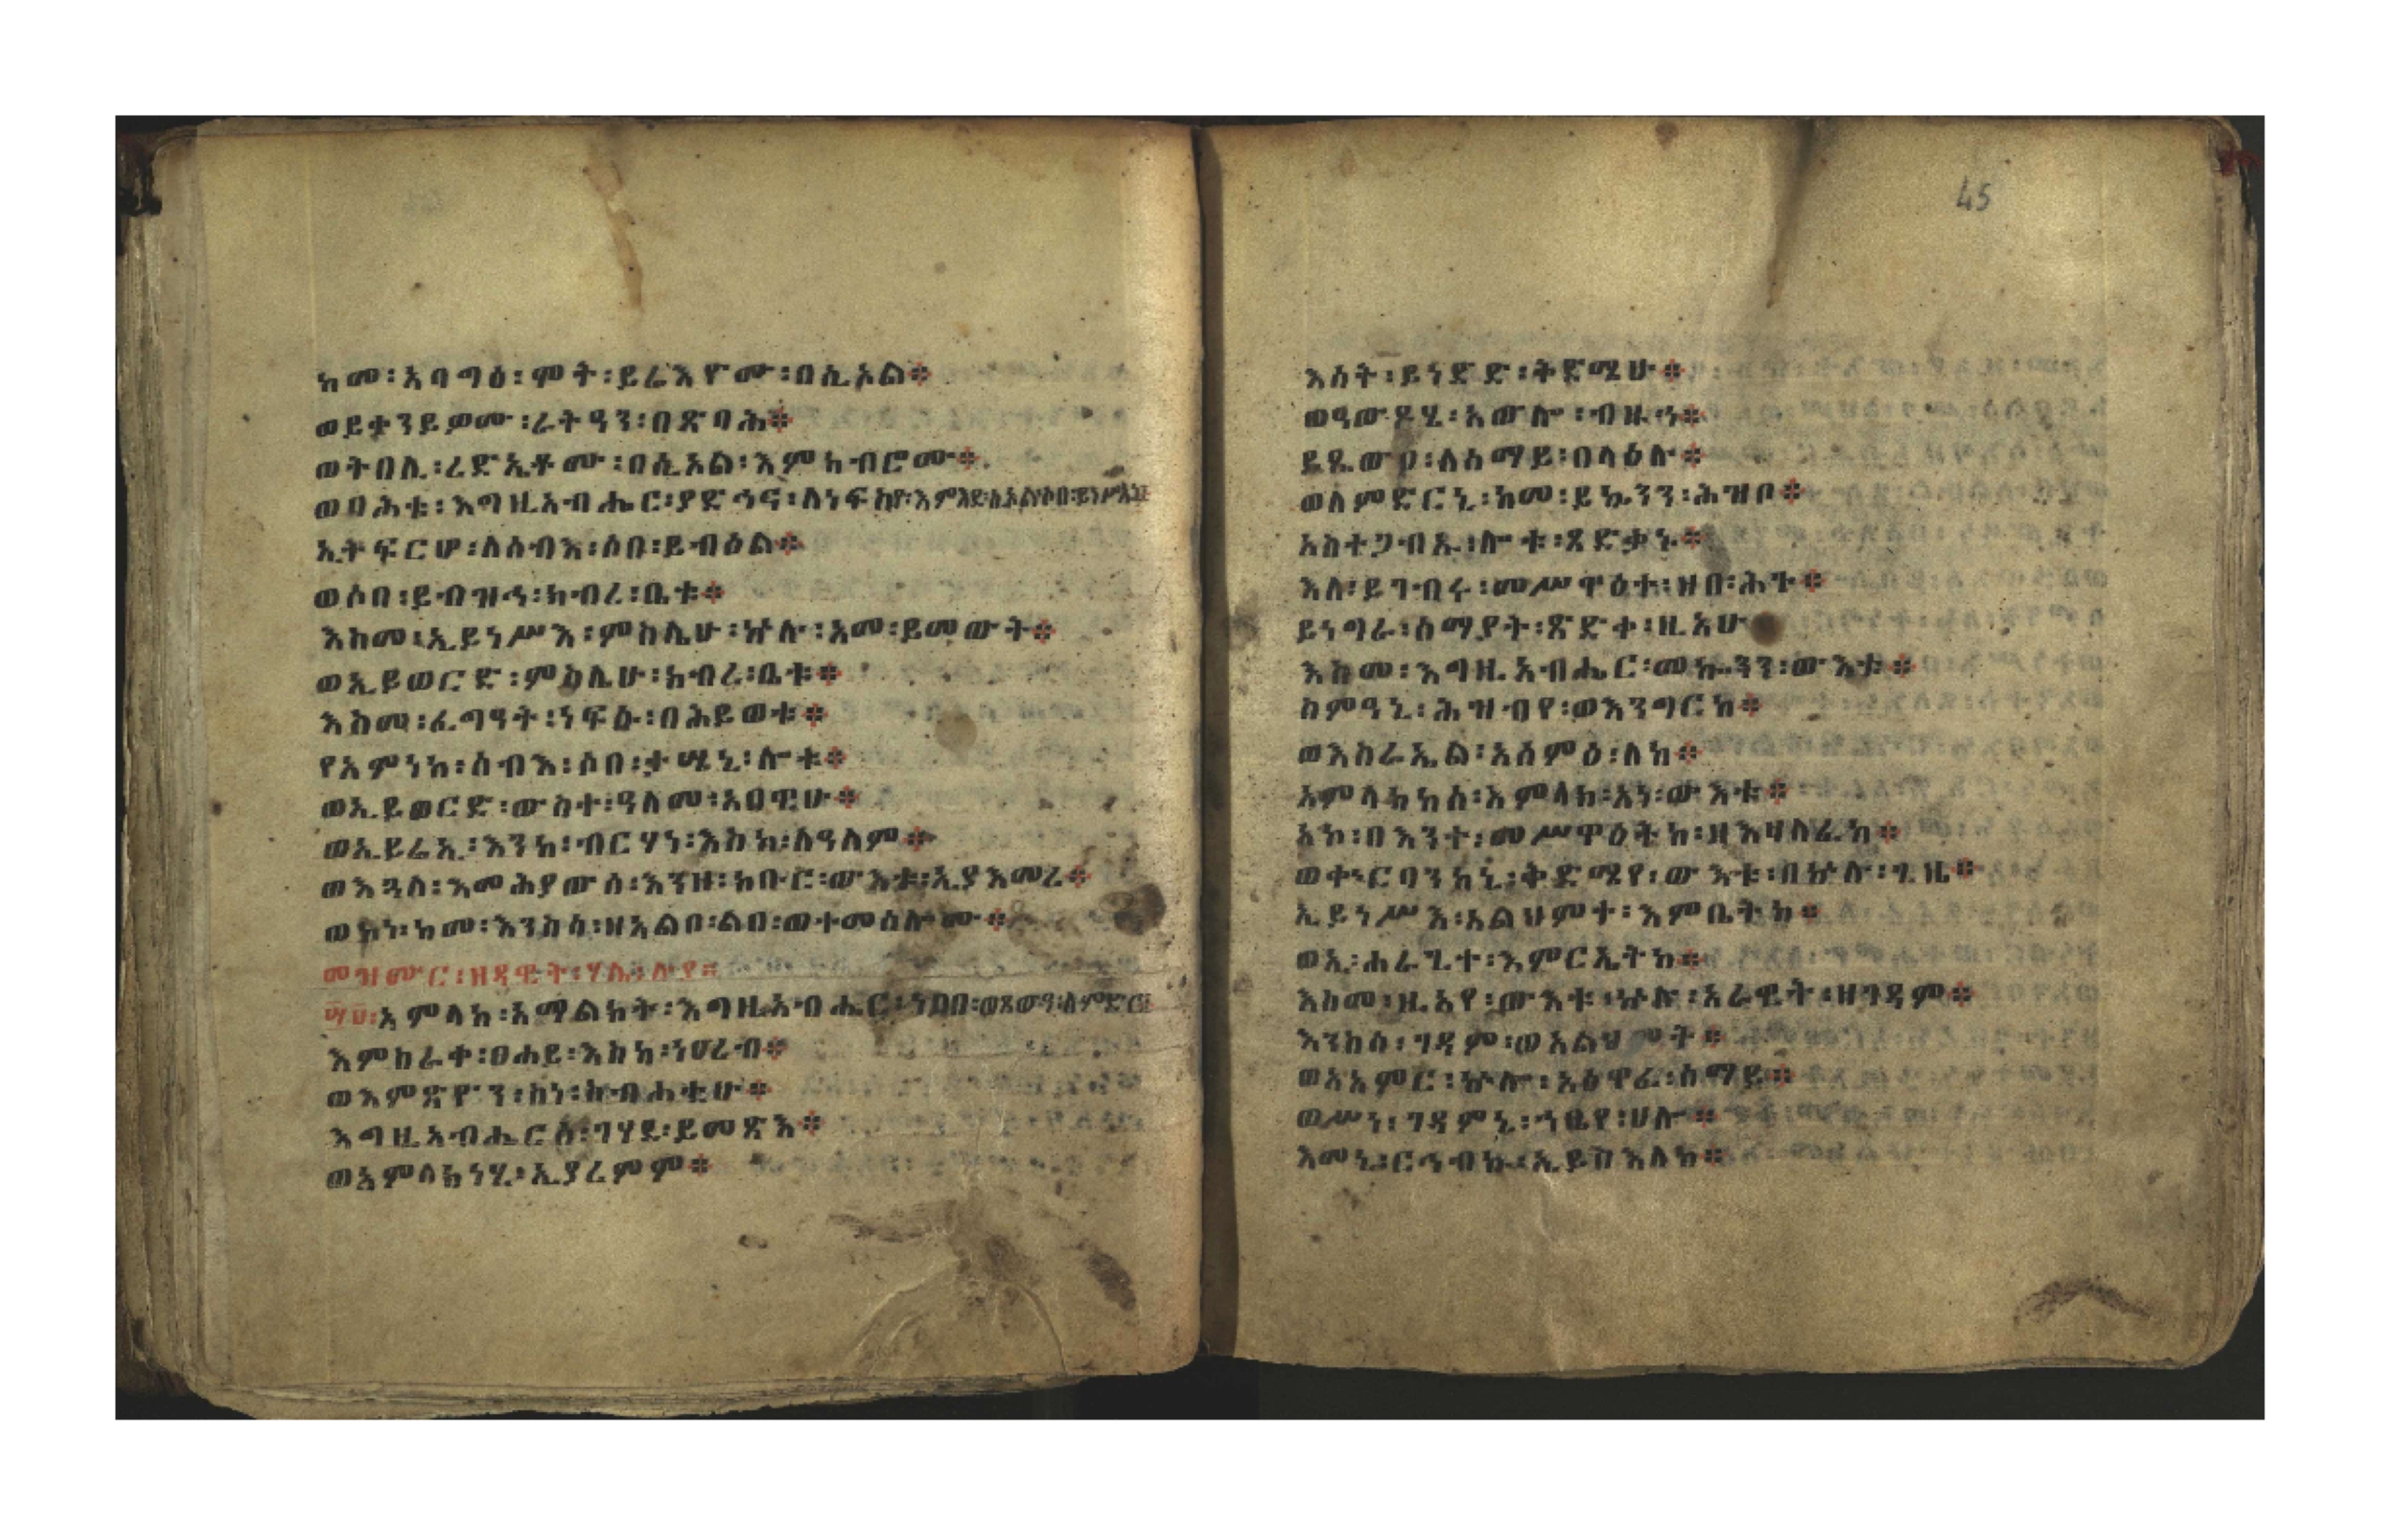 ከመ፡አባግዕ፡ሞት፡ይሬእዮሙ፡በሲኦል።
ወይቀንይዎሙ፡ራትዓን፡በጽባሕ።
ወትበሊ፡ረድኤቶሙ፡በሲኦል፡እምክብሮሙ።
ወባሕቱ፡እግዚአብሔር፡ያድኅና፡ለነፍስየ፡እምእደ፡ሲኦል፡ሶበ፡ይነሥኡኒ
ኢትፍርሆ፡ለሰብእ፡ሶበ፡ይብዕል።
ወሶበ፡ይብዝኅ፡ክብረ፡ቤቱ።
እስመ፡ኢይነሥእ፡ምስሌሁ፡ኵሉ፡አመ፡ይመውት።
ወኢይወርድ፡ምስሌሁ፡ክብረ፡ቤቱ።
እስመ፡ፈግዓት፡ነፍሱ፡በሕይወቱ።
የአምነከ፡ሰብእ፡ሶበ፡ታሜኒ፡ሎቱ።
ወኢይወርድ፡ውስተ፡ዓለመ፡አበዊሁ።
ወኢይሬኢ፡እንከ፡ብርሃነ፡እስከ፡ለዓለም።
ወእጓለ፡እመሕያውሰ፡እንዘ፡ክቡር፡ውእቱ፡ኢያእመረ።
ወኮነ፡ከመ፡እንስሳ፡ዘአልቦ፡ልበ፡ወተመሰሎሙ።
መዝሙር፡ዘዳዊት፡ሃሌ፡ሉያ።
፵፱፡አምላከ፡አማልክት፡እግዚአብሔር፡ነበበ፡ወጸውዓ፡ለምድር፡
እምሥራቀ፡ፀሐይ፡እስከ፡ነዐረብ።
ወእምጽዮን፡ስነ፡ክብሐቲሁ።
እግዚአብሔርሰ፡ገሃደ፡ይመጽእ።
ወአምላክነሂ፡ኢያረምም።
45
እሳት፡ይነድድ፡ቅድሜሁ።
ወዓውዶሂ፡አውሎ፡ብዙኅ።
ይጼውዐ፡ለሰማይ፡በላዕሉ።
ወለምድርኒ፡ከመ፡ይኰንን፡ሕዝቦ።
አስተጋብኡ፡ሎቱ፡ጻድቃኑ።
እለ፡ይገብሩ፡መሥዋዕተ፡ዘበ፡ሕጉ።
ይነግራ፡ሰማያት፡ጽድቀ፡ዚአሁ
እስመ፡እግዚአብሔር፡መኰንን፡ውእቱ።
ስምዓኒ፡ሕዝብየ፡ወእንግርከ።
ወእስራኤል፡አሰምዕ፡ለከ።
አምላክከሰ፡አምላክ፡አነ፡ውእቱ።
አኮ፡በእንተ፡መሥዋዕትከ፡ዘእዛለፈከ።
ወቍርባንከኒ፡ቅድሜየ፡ውእቱ፡በኵሉ፡ጊዜ።
ኢይነሥእ፡አልህምተ፡እምቤትከ።
ወኢ፡ሐራጊተ፡እምርኤትከ።
እስመ፡ዚአየ፡ውእቱ፡ኵሉ፡አራዊት፡ዘገዳም።
እንስሳ፡ገዳም፡ወአልህምት።
ወአአምር፡ኵሎ፡አዕዋፈ፡ሰማይ።
ወሥነ፡ገዳምኒ፡ኀቤየ፡ሀሎ።
እመኒ፡ርኅብኩ፡ኢይስእለከ።